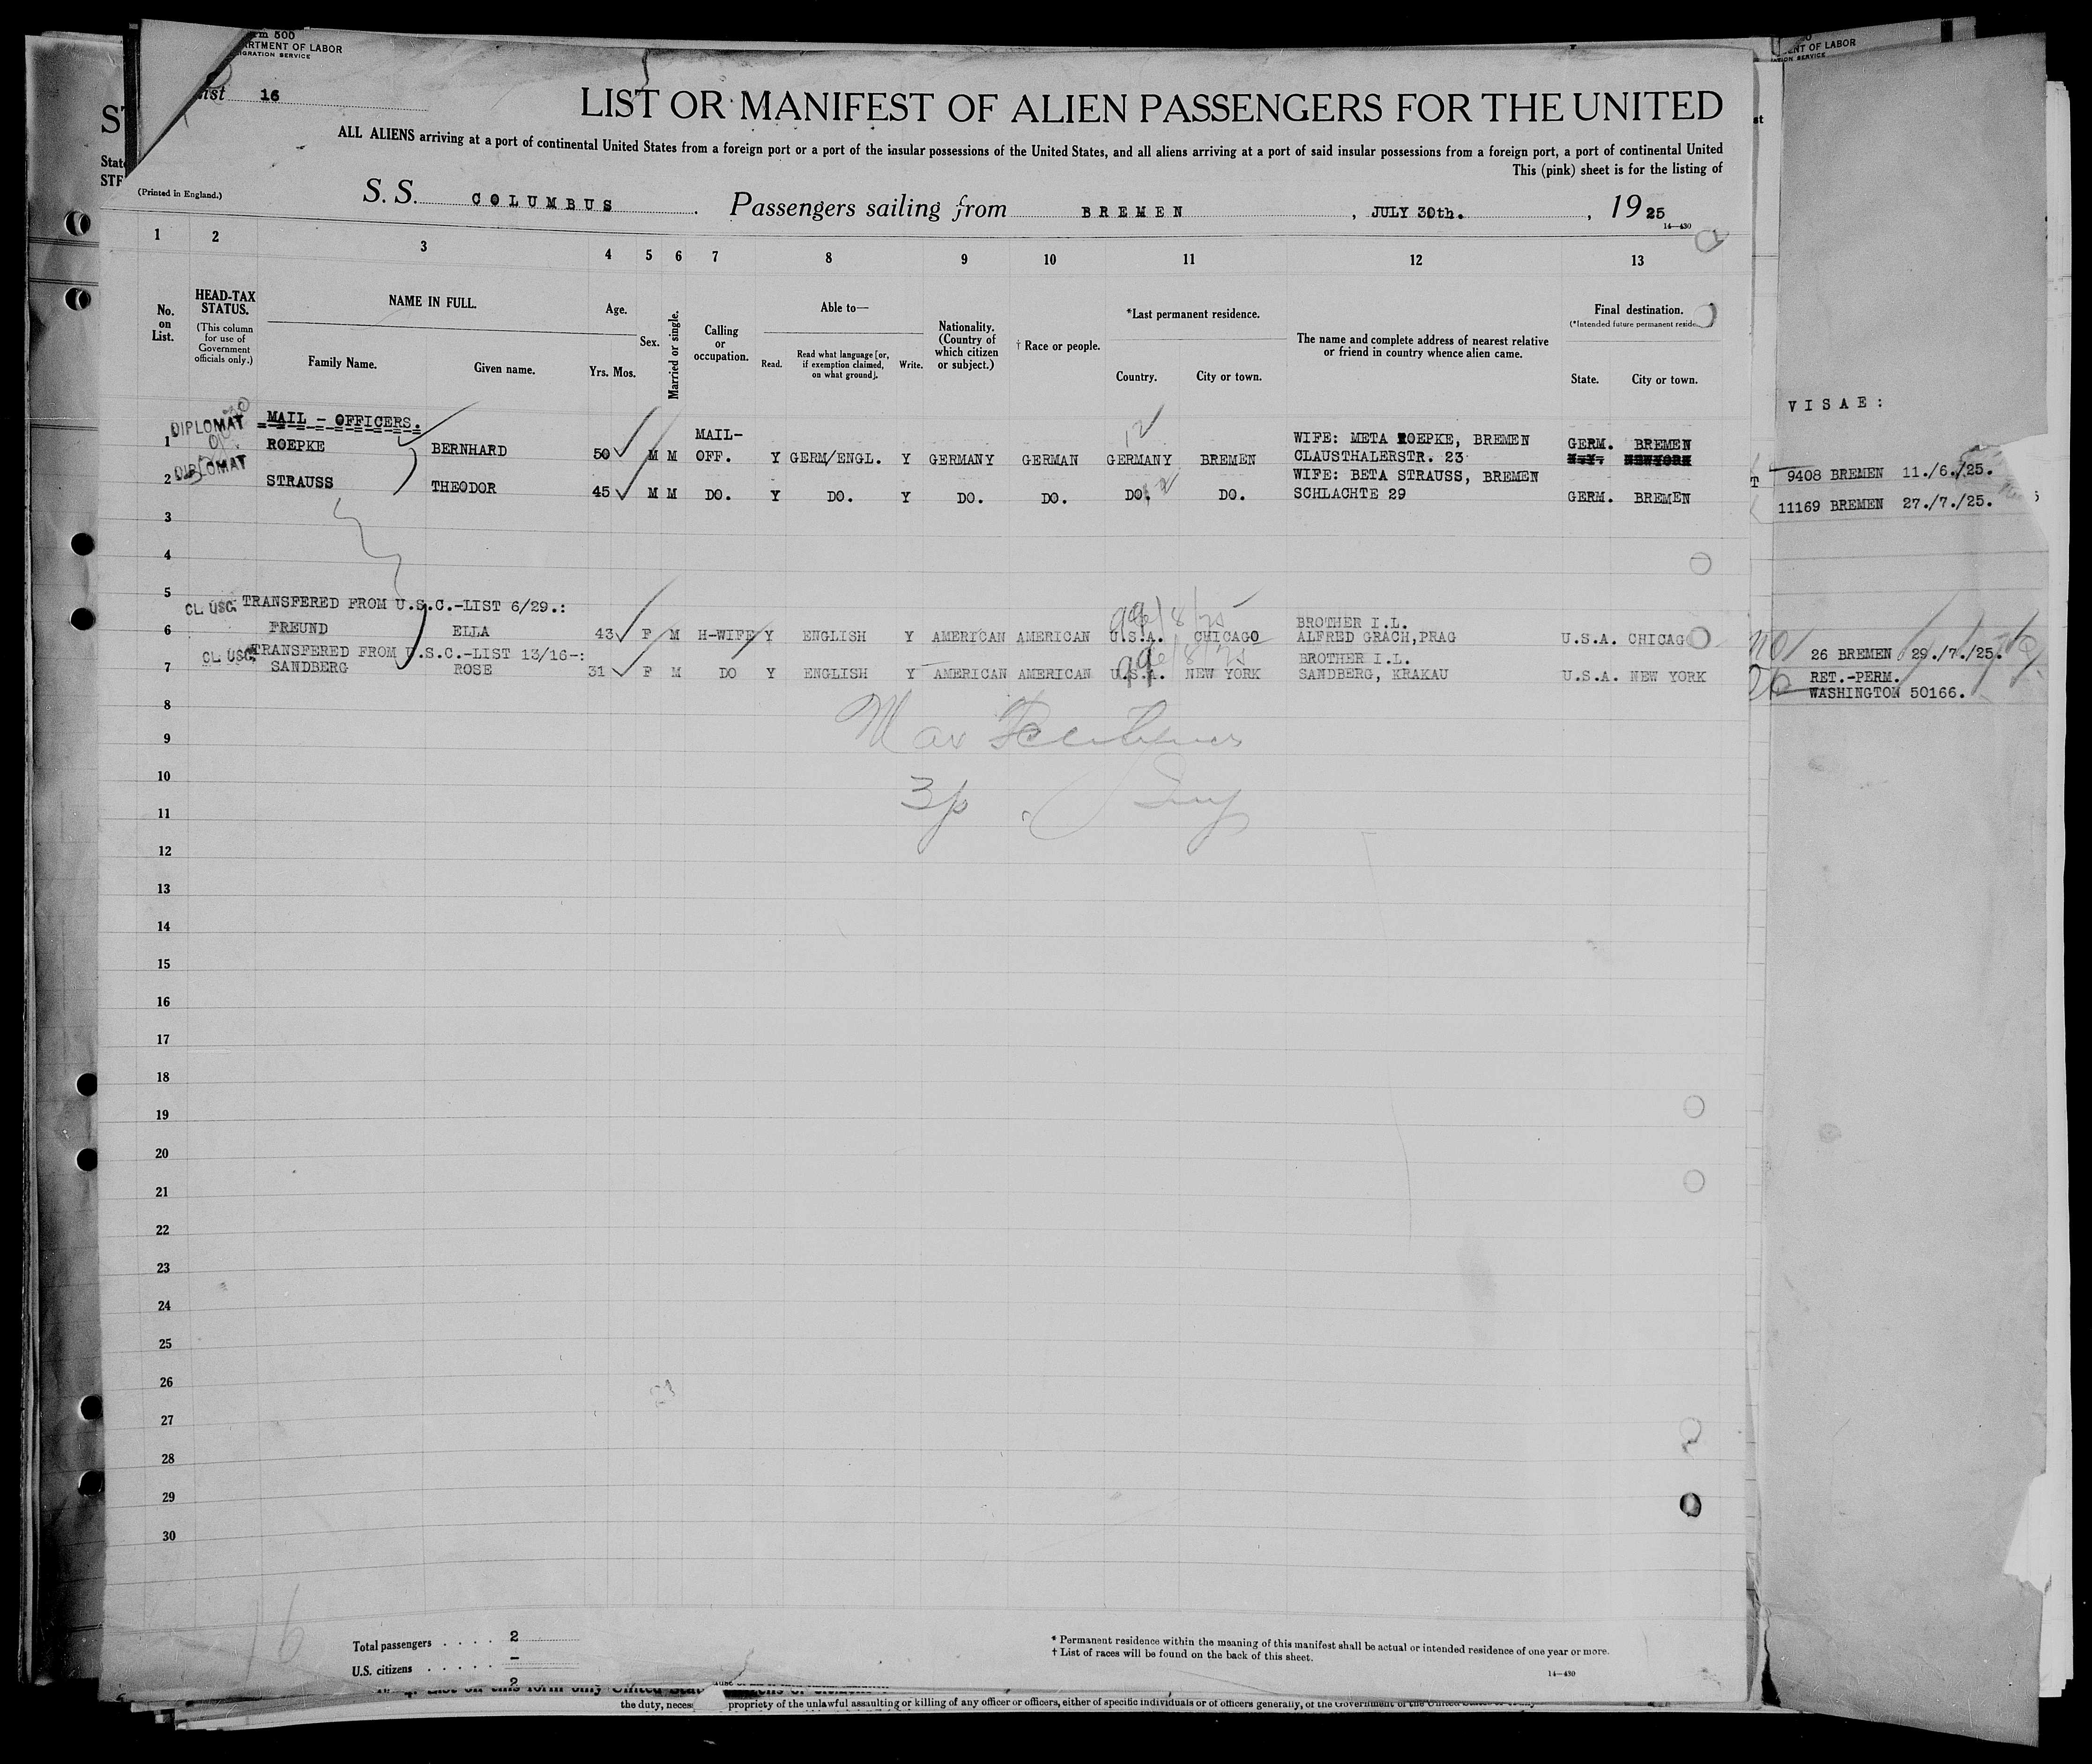 rm 500
RTMENT OF LABOR
IGRATION SERVICE
ist 16
LIST OR MANIFEST OF ALIEN PASSENGERS FOR THE UNITED
ALL ALIENS arriving at a port of continental United States from a foreign port or a port of the insular possessions of the United States, and all aliens arriving at a port of said insular possessions from a foreign port, a port of continental United
This (pink) sheet is for the listing of
(Printed in England.)
S. S. COLUMBUS. Passengers sailing from BREMEN, JULY 30th., 1925
14—430
1 2 3 4 5 6 7 8 9 10 11 12 13
No. on List.
HEAD-TAX STATUS.
(This column for use of Government officials only.)
NAME IN FULL.
Family Name. Given name.
Age.
Yrs. Mos.
Sex.
Married or single.
Calling or occupation.
Able to—
Read. Read what language [or, if exemption claimed, on what ground]. Write.
Nationality. (Country of which citizen or subject.)
† Race or people.
*Last permanent residence.
Country. City or town.
The name and complete address of nearest relative or friend in country whence alien came.
Final destination.
(*Intended future permanent reside
State. City or town.
VISAE:
DIPLOMAT MAIL - OFFICERS.
12
1 ROEPKE BERNHARD 50 M M MAIL-OFF. Y GERM/ENGL. Y GERMANY GERMAN GERMANY BREMEN WIFE: META ROEPKE, BREMEN CLAUSTHALERSTR. 23 GERM. BREMEN N.Y. NEWYORK 9408 BREMEN 11./6./25.
DIPLOMAT
2 STRAUSS THEODOR 45 M M DO. Y DO. Y DO. DO. DO. DO. WIFE: BETA STRAUSS, BREMEN SCHLACHTE 29 GERM. BREMEN 11169 BREMEN 27./7./25.
3
4
5
CL. USC. TRANSFERED FROM U.S.C.-LIST 6/29.:
6 FREUND ELLA 43 F M H-WIFE Y ENGLISH Y AMERICAN AMERICAN U.S.A. CHICAGO BROTHER I.L. ALFRED GRACH,PRAG U.S.A. CHICAG 26 BREMEN 29./7./25.
CL. USC. TRANSFERED FROM U.S.C.-LIST 13/16-:
7 SANDBERG ROSE 31 F M DO Y ENGLISH Y AMERICAN AMERICAN U.S.A. NEW YORK BROTHER I.L. SANDBERG, KRAKAU U.S.A. NEW YORK RET.-PERM. WASHINGTON 50166.
8
Max
9
10
3p
11
12
13
14
15
16
17
18
19
20
21
22
23
24
25
26
27
28
29
30
16
Total passengers . . . . 2
U.S. citizens . . . . . –
2
* Permanent residence within the meaning of this manifest shall be actual or intended residence of one year or more.
† List of races will be found on the back of this sheet.
14—430
the duty, neces propriety of the unlawful assaulting or killing of any officer or officers, either of specific individuals or of officers generally, of the Government of the United